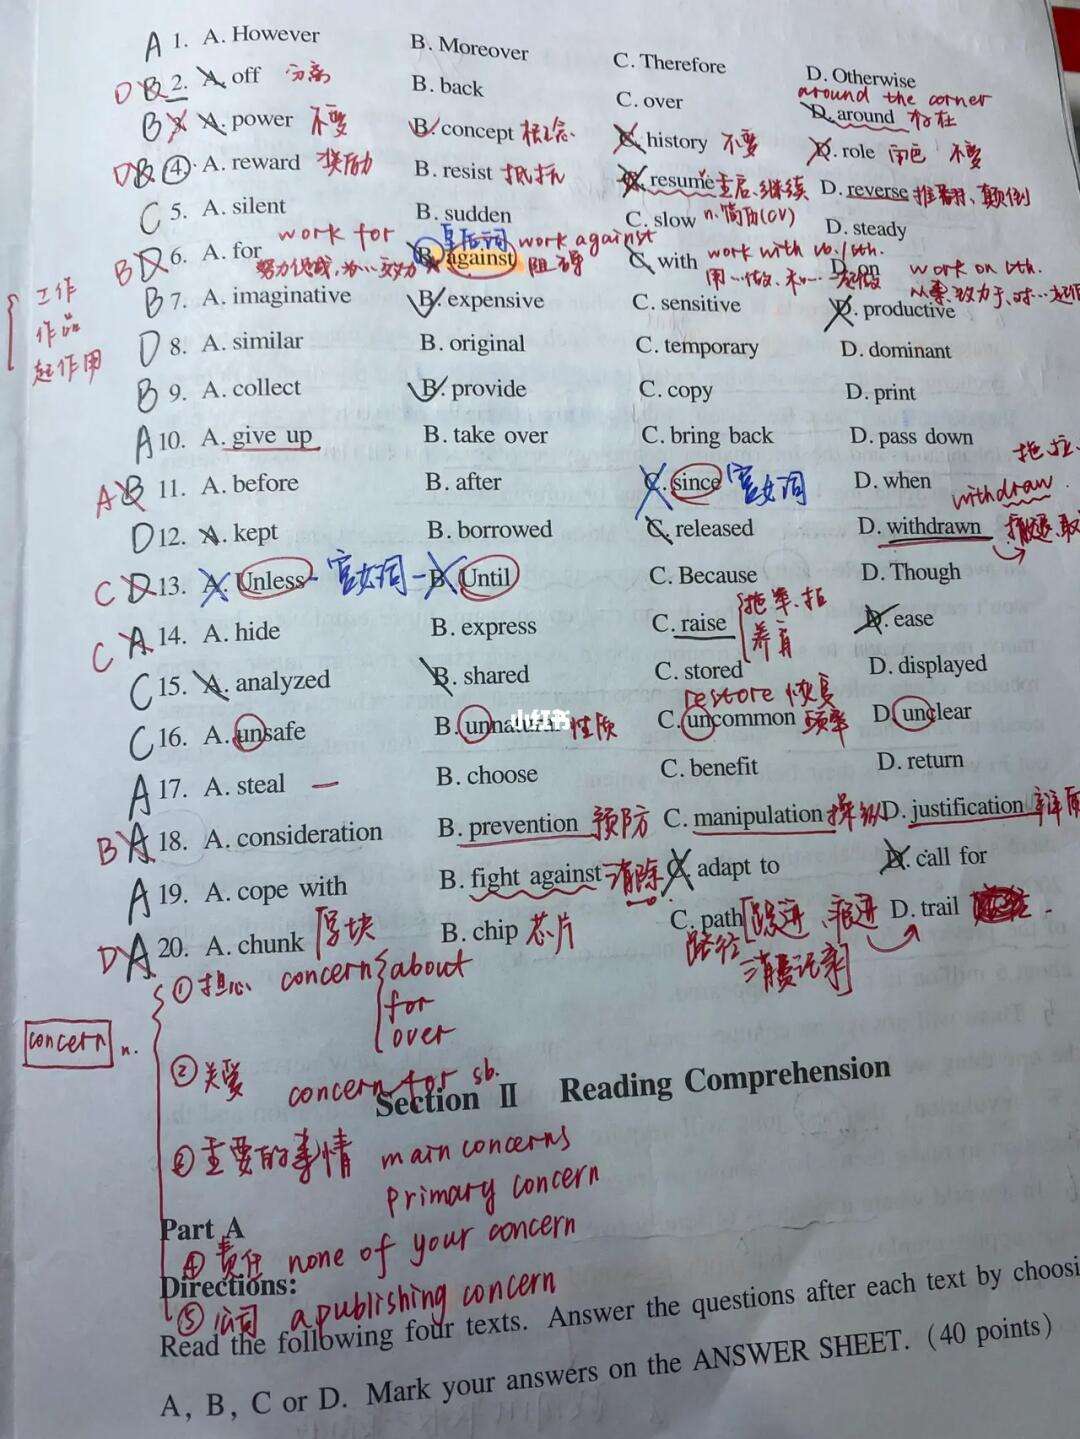 A 1. A. However B. Moreover C. Therefore D. Otherwise
around the corner
D B 2. A. off 分离 B. back C. over D. around 存在
B A. power 不变 B. concept 概念 C. history 不变 D. role 角色 不变
D B ④. A. reward 奖励 B. resist 抵抗 C. resume 重启、继续 D. reverse 推翻、颠倒
n. 简历(CV)
C 5. A. silent B. sudden C. slow D. steady
work for 皇后词 work against work with sb./sth. work on sth.
B D 6. A. for B. against 阻碍 C. with D. on
B 7. A. imaginative B. expensive C. sensitive D. productive
工作
作品
起作用
D 8. A. similar B. original C. temporary D. dominant
B 9. A. collect B. provide C. copy D. print
A 10. A. give up B. take over C. bring back D. pass down
A B 11. A. before B. after C. since 宫女词 D. when
withdraw
D 12. A. kept B. borrowed C. released D. withdrawn
C D 13. A. Unless - 宫女词 - B. Until C. Because D. Though
C A 14. A. hide B. express C. raise 养育 D. ease
C 15. A. analyzed B. shared C. stored D. displayed
restore 恢复
C 16. A. unsafe B. unnatural 性质 C. uncommon 频率 D. unclear
小红书
A 17. A. steal B. choose C. benefit D. return
B A 18. A. consideration B. prevention 预防 C. manipulation 操纵 D. justification
A 19. A. cope with B. fight against 消除 C. adapt to D. call for
D A 20. A. chunk 厚块 B. chip 芯片 C. path D. trail
路径
concern n.
① 担心 concern about
for
over
② 关爱 concern for sb.
Section II Reading Comprehension
③ 重要的事情 main concerns
primary concern
Part A
④ 责任 none of your concern
Directions:
⑤ 公司 a publishing concern
Read the following four texts. Answer the questions after each text by choosi
A, B, C or D. Mark your answers on the ANSWER SHEET. (40 points)